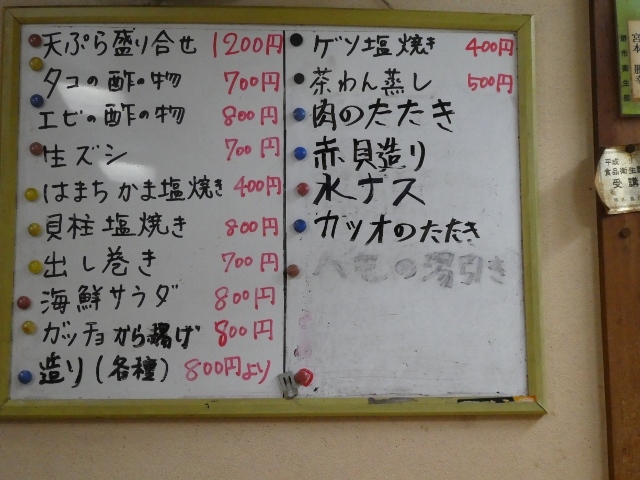 天ぷら盛り合せ 1200円
タコの酢の物 700円
エビの酢の物 800円
生ズシ 700円
はまちかま塩焼き 400円
貝柱塩焼き 800円
出し巻き 700円
海鮮サラダ 800円
ガッチョから揚げ 800円
造り(各種) 800円より
ゲソ塩焼き 400円
茶わん蒸し 500円
肉のたたき
赤貝造り
水ナス
カツオのたたき
ハモの湯引き
平成
食品衛生
受講